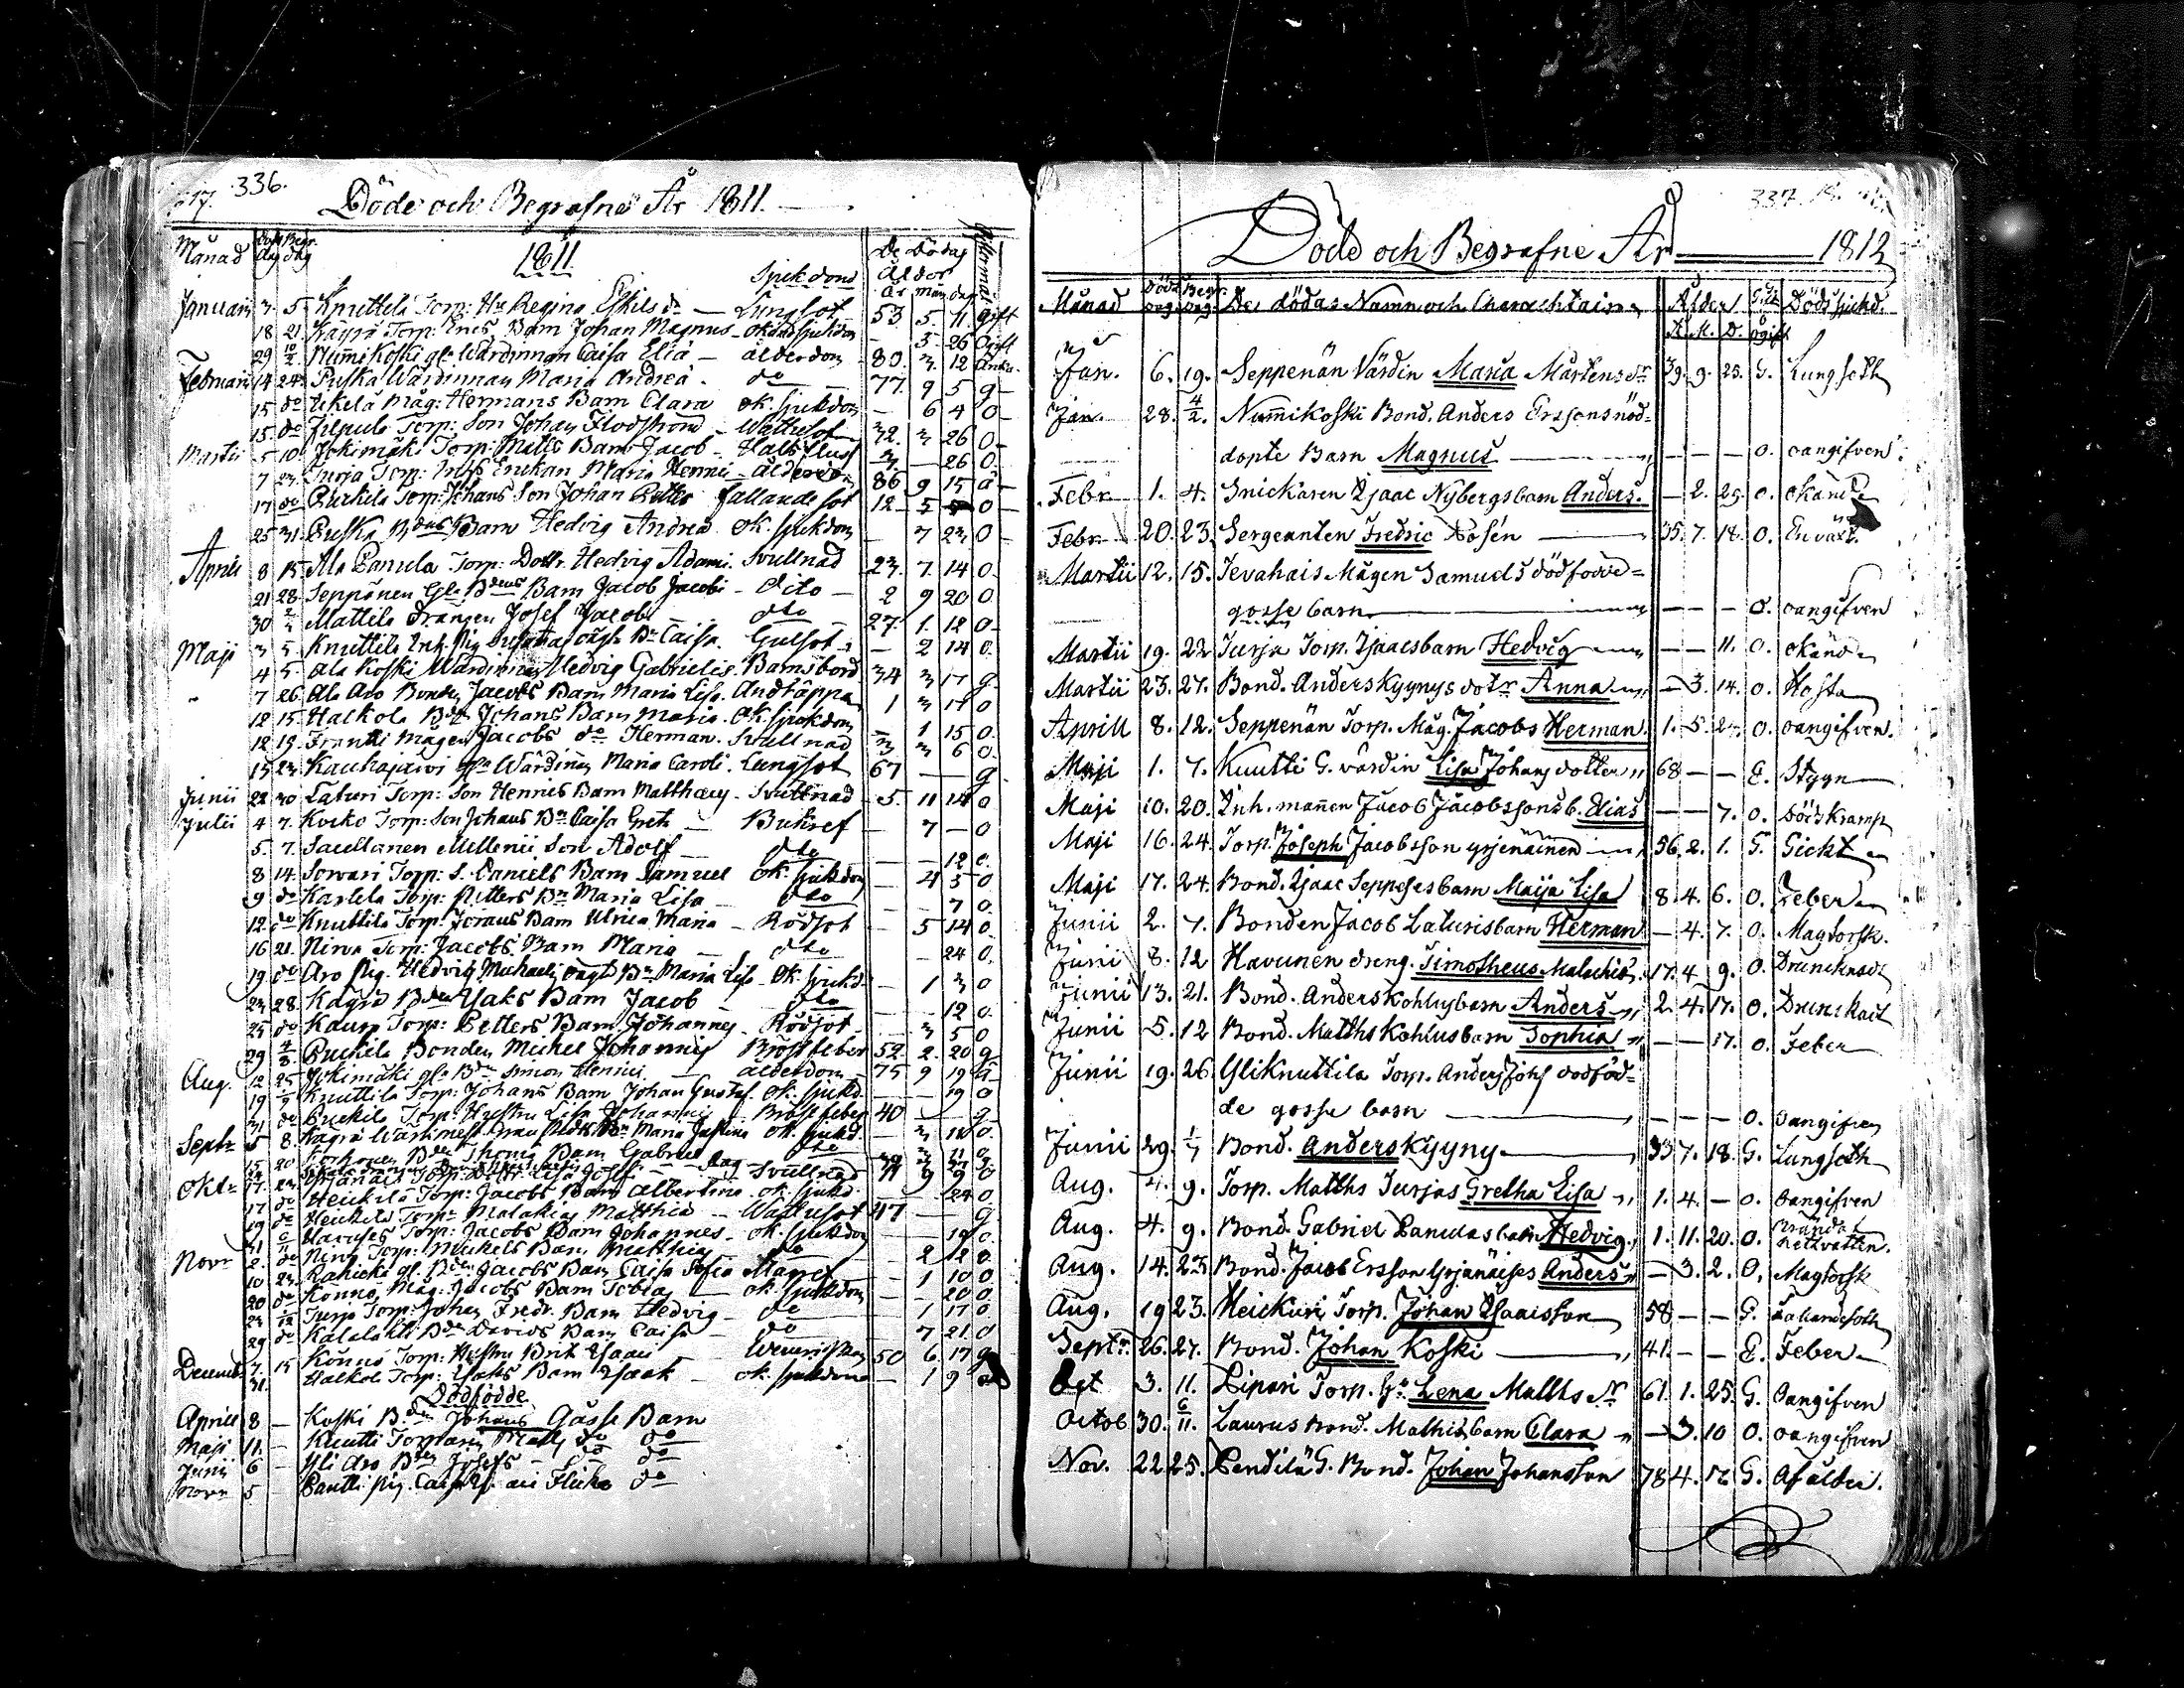 336.
Döde och Begrafne År 1811.
Månad
1811
Sjukdom
De Dödas
Ålder
år mån dag
Januari 3. 5 Knuttila Torp: Hu Regina Eskils dr — Lungsot 53. 5. 11. gift
18 21. Kayrä Torp: Bam Johan Magnus — okänd sjukdom — 3 26 Ogift
29 10/2 Nummikoski gl. Wärdinnan Caisa Eliæ — ålderdom — 80. 3 12
Februari 14 24 Puska Wärdinnan Maria Andreæ. do — 77. 9 5 g
15 do Ukelä Måg: Hermans Bam Clara ok. sjukdom — 6 4 o
15. do Torp: Son Johan Flodström — Wattusot 32. 3 26 o
Martii 5 10 Jokimäki Torp: Matts Bam Jacob — Halsfluss — 26 o.
7 23. Jurja Torp: Enkan Maria Henrici — ålderdom 86 9 15 ä
17 do Torp: Johans Son Johan Petter fallande sot 12 — 5 o
25 31. Puska Bdens Bam Hedvig Andreæ. ok. sjukdom — 7 23 o
Aprili 8 15 Ala Panula Torp: Dottr. Hedvig Adami. Svullnad 23. 7. 14 o.
21 28. Seppänen Gl. Bdens Bam Jacob Jacobi — dito — 2 9 20 o.
30 Mattila drängen Josef Jacobi — dto — 27. 1. 18 o
Maji 3 5 Knuttila Inh. Pig oägt Bn Caisa. Gulsot — 2 14 o.
4 5. Ala Koski Wärdinnan Hedvig Gabrielis. Barnsbörd 34 3 17 g
7 26 Ala Aro Bonden Jacobs Bam Maria Lisa. Andtäppa 1 3 17 o
12 15. Halkola Bdn Johans Bam Maria. ok. sjukdom — 1 15 o.
12 19. Frantti Mågen Jacobs do Herman. Svullnad 3 3 6 o.
15 23 Kauhajärvi gla Wärdinan Maria Caroli. Lungsot 67 — — g
Junii 22 30 Laturi Torp: Son Henrics Bam Matthæus — Svullnad 5. 11 14 o
Julii 4 7. Torp: Son Johans Bn Caisa Greta — Bukref — 7 — o
5. 7. Son Adolf — dto — — 12 o.
8 14 Torp: S. Daniels Bam Samuel ok. sjukdom — 4 5 o
9 do Karlela Torp: Petters Bn Maria Lisa — dto — — 7 o.
12. do Knuttila Torp: Bam Ulrica Maria — Rödsot — 5 14 o.
16 21. Nirva Torp: Jacobs Bam Maria — dto — — 24 o.
19 do Aro Pig. Hedvig Michaels oägt Bn Maria Lisa — ok. sjukd. — 1 3 o
23 28. Kayrä Bden Isaks Bam Jacob — dto — — 12 o.
25 do Kaura Torp: Petters Bam Johannes — Rödsot — 3 5 o
29 4/8 Bonden Michel Johannis Bröstfeber 52. 2. 20 g
Aug. 12 25 Jokimäki gl. Bdn Simon Henrici — ålderdom 75 9 19
19 Knuttila Torp: Johans Bam Johan Gustaf. ok. sjukd. — — 19 o
31 do Torp: Hustru Lisa Johannis — Bröstfeber 40 — — g
Septr 5 8. Kayrä Maria Justina ok. sjukd. — 3 o.
15 20 Bden Thomæ Bam Gabriel
Oktr 17. Torp: Dottr. Lisa Josef. — Svullnad
17 do Heickilä Torp: Jacobs Bam Albertina. ok. sjukd. — — 24 o.
19 do Heickilä Torp: Malakias Matthiæ — Wattusot 47 — — g
31 Torp: Jacobs Bam Johannes — ok. sjukdom — — 19 o.
Novr 2. do Nirva Torp: Michels Bam Matthias — do — 2 12 o.
10 23. gl. Bden Jacobs Bam Caisa Sofia Magref — 1 10 o
20 do Könnö Måg: Jacobs Bam Tobias — ok. sjukdom — — 20 o.
Jurja Torp: Johan Fredr. Bam Hedvig — do — 1 17 o
29 do Kalalahti Bdn Davids Bam Caisa — do — 7 21 o
Decemb. 7. 15 Könnö Torp: Hustru Brit Isaaci — 50 6 17 g
31. Halkola Torp: Isaks Bam Isaak — ok. sjukdom — 1 9
Dödfödde
Aprill 8 — Koski Bdn Johans Gosse Bam
Maji 11. — Knutti Torparen Matts do do
Junii 6 — Yli Aro Bden Josefs — do do
Novr 5 — Pantti Pig. Caisa Flicke do
337.
Döde och Begrafne År 1812
Månad Död dag Begr. dag De dödas Namn och Charachtairer Ålder Gift Dödssjukd.
Å. M. D. ogift
Jan. 6. 19. Seppenän Värdin Maria Mårtensdr 39. 9. 25. G. Lungsoth
Jan. 28. 4/2. Nummikoski Bond. Anders Erssons nöd=
döpte Barn Magnus — — — — o. oangifven.
Febr. 1. 4. Snickaren Isaac Nybergs barn Anders. — 2. 25. o. okänd
Febr. 20. 23. Sergeanten Fredric Rosén — 35. 7. 18. O.
Martii 12. 15. Ievahais Mågen Samuels dödfödde=
gosse barn — — — — o. oangifven
Martii 19. 22 Jurja Torp. Isaacs barn Hedvig — — 11. o. okänd
Martii 23. 27. Bond. Anders Kyynys dotr Anna — 3. 14. o. Hosta
Aprill 8. 12. Seppenän Torp. Måg. Jacobs Herman. 1. 5. 27. o. oangifven.
Maji 1. 7. Knutti G. värdin Lisa Johans dotter 68 — — E. Stygn
Maji 10. 20. Inh. mannen Jacob Jacobssons b. Elias — — 7. o. Dödskramp
Maji 16. 24. Torp. Joseph Jacobsson yrjenäinen 56. 2. 1. G. Gickt
Maji 17. 24. Bond. Isaac Seppeses barn Maija Lisa 8. 4. 6. O. Feber
Junii 2. 7. Bonden Jacob Laturis barn Herman — 4. 7. O. Magtorsk.
Junii 8. 12 Havunen dreng. Timotheus Malachiæ. 17. 4 9. O. Drunchnadt
Junii 13. 21. Bond. Anders Kohlus barn Anders 2. 4. 17. O. Drunchnat
Junii 5. 12 Bond. Matths Kohlus barn Sophia — — 17. o. Feber
Junii 19. 26. Yli Knuttila Torp. Anders Johs dödföd=
de gosse barn — — — — o. oangifven
Junii 29. 1/7 Bond. Anders Kyyny — 33 7. 18. G. Lungsoth
Aug. 4. 9. Torp. Matths Jurjas Gretha Lisa 1. 4. — o. oangifven
Aug. 4. 9. Bond. Gabriel Panulas barn Hedvig 1. 11. 20. o. Brändt hettvatten.
Aug. 14. 23. Bond. Jacob Ersson Yrjänäises Anders — 3. 2. O. Magtorsk
Aug. 19 23. Heickuri Torp. Johan Isaacsson 58 — — G. Fallandesoth
Septr. 26. 27. Bond. Johan Koski — 41. — — E. Feber
Oct 3. 11. Lipari Torp. Ga Lena Matthsdr 61. 1. 25. G. Oangifven
Octob 30. 6/11. Laurus bond. Mathis barn Clara — 3. 10 O. oangifven
Nov. 22 25. Pendilä G. Bond. Johan Johansson 78 4. 12 G. Af ålder.